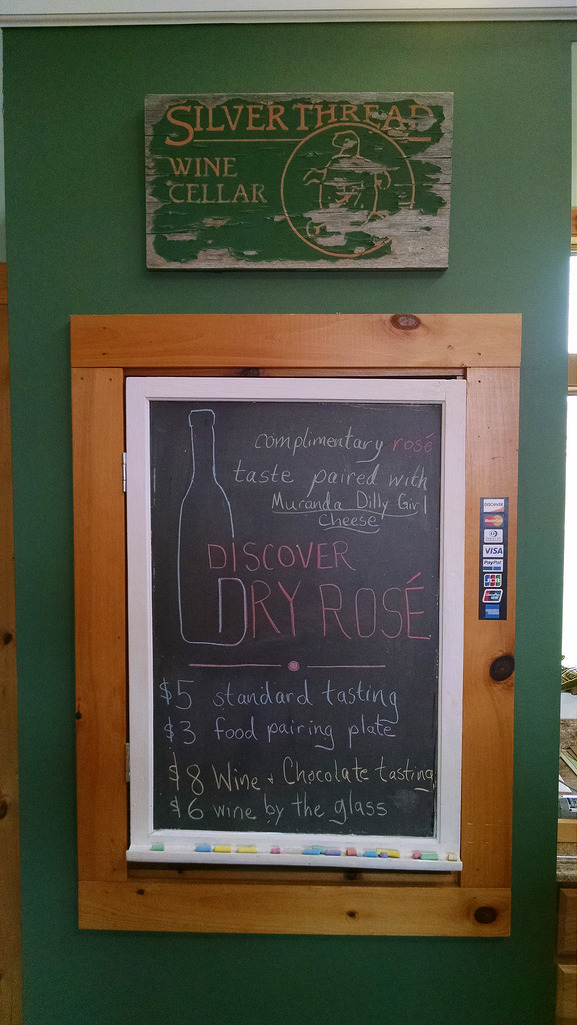 SILVER THREAD
WINE
CELLAR
complimentary rosé
taste paired with
Muranda Dilly Girl
cheese
DISCOVER
DRY ROSÉ
$5 standard tasting
$3 food pairing plate
$8 Wine + Chocolate tasting
$6 wine by the glass
DISCOVER
VISA
PayPal
JCB